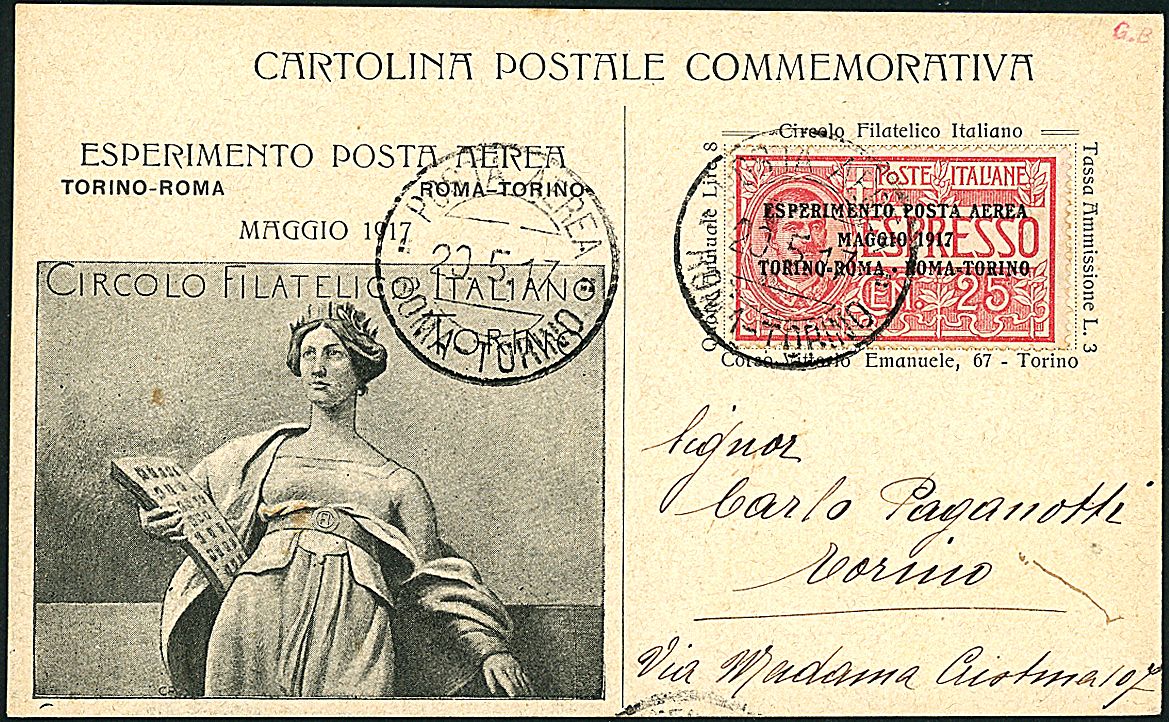 G.B
CARTOLINA POSTALE COMMEMORATIVA
ESPERIMENTO POSTA AEREA
TORINO-ROMA ROMA-TORINO
MAGGIO 1917
CIRCOLO FILATELICO ITALIANO
TORINO
POSTA AEREA
20.5.17
ROMA-TORINO
Circolo Filatelico Italiano
Quota Annuale Lire 8
Tassa Ammissione L. 3
Corso Vittorio Emanuele, 67 - Torino
POSTE ITALIANE
ESPRESSO
CEN. 25
ESPERIMENTO POSTA AEREA
MAGGIO 1917
TORINO-ROMA · ROMA-TORINO
POSTA AEREA
20.5.17
ROMA-TORINO
Signor
Carlo Paganotti
Torino
Via Madama Cristina 107